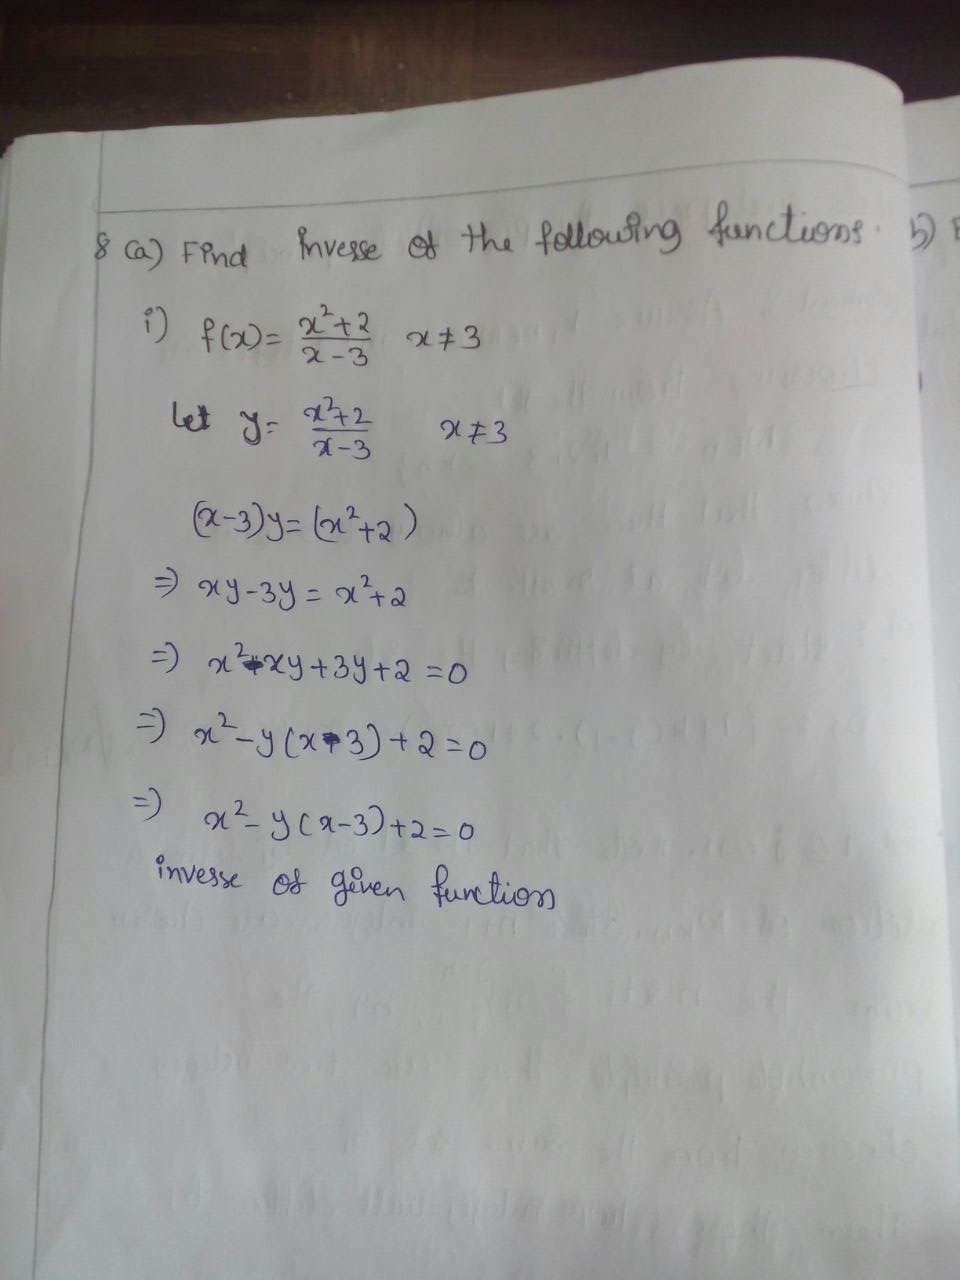 8 (a) Find inverse of the following functions. b)
i) f(x)= x²+2 / x-3 x≠3
Let y= x²+2 / x-3 x≠3
(x-3)y=(x²+2)
⇒ xy-3y = x²+2
⇒ x²-xy+3y+2=0
⇒ x²-y(x-3)+2=0
⇒ x²-y(x-3)+2=0
inverse of given function